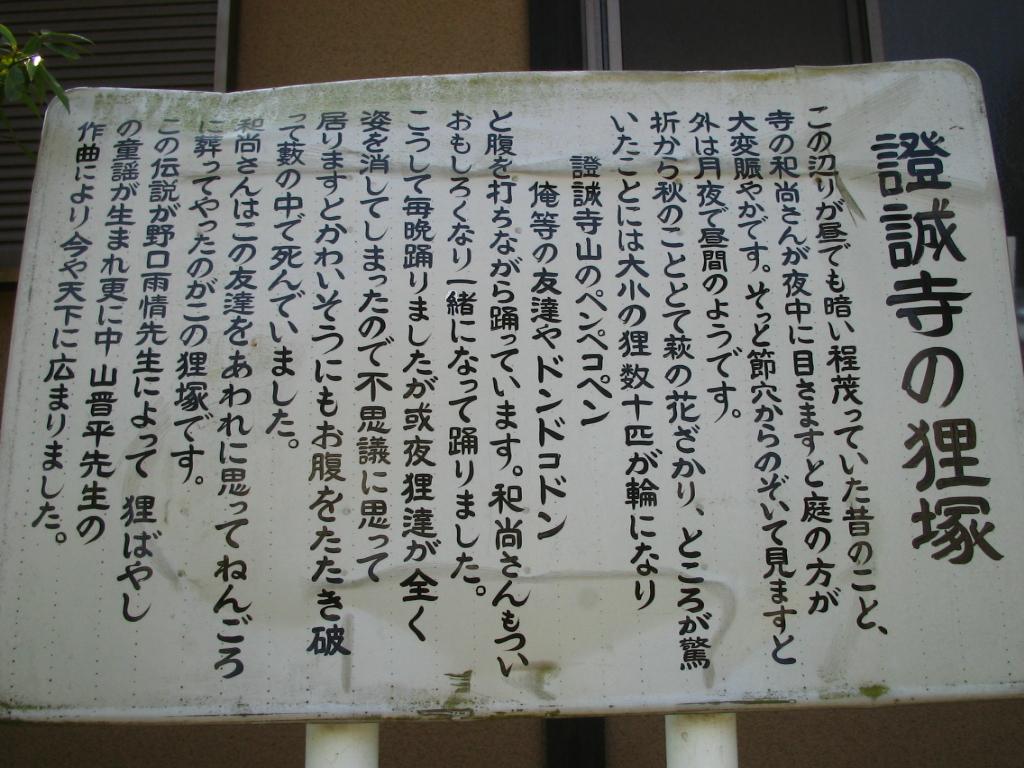 證誠寺の狸塚
この辺りが昼でも暗い程茂っていた昔のこと、
寺の和尚さんが夜中に目さますと庭の方が
大変賑やかです。そっと節穴からのぞいて見ますと
外は月夜で昼間のようです。
折から秋のこととて萩の花ざかり、ところが驚
いたことには大小の狸数十匹が輪になり
證誠寺山のペンペコペン
俺等の友達やドンドコドン
と腹を打ちながら踊っています。和尚さんもつい
おもしろくなり一緒になって踊りました。
こうして毎晩踊りましたが或夜狸達が全く
姿を消してしまったので不思議に思って
居りますとかわいそうにもお腹をたたき破
って藪の中で死んでいました。
和尚さんはこの友達をあわれに思ってねんごろ
に葬ってやったのがこの狸塚です。
この伝説が野口雨情先生によって 狸ばやし
の童謡が生まれ更に中山晋平先生の
作曲により今や天下に広まりました。